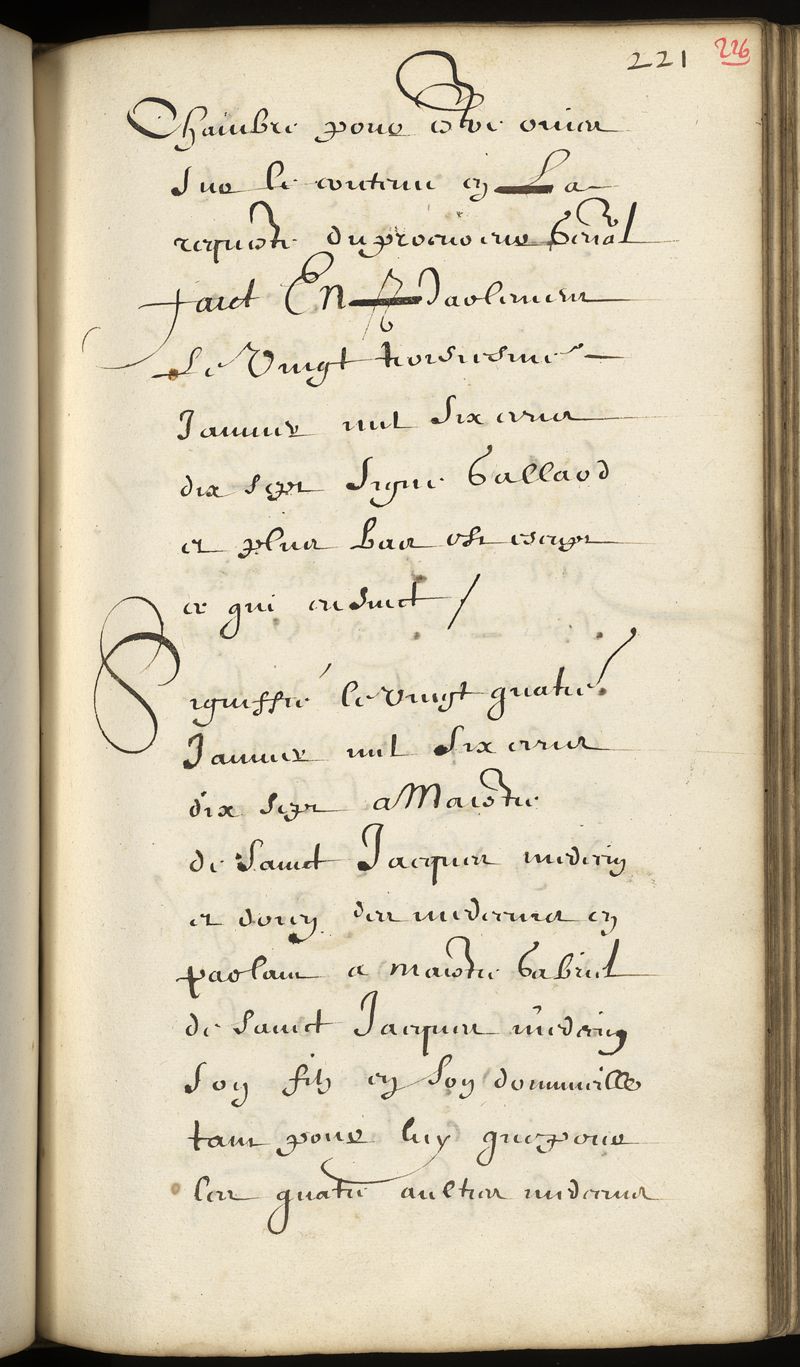 221 226
Chambre pour estre ouiez
sur le contenu en La
requeste du procureur general
faict En Parlement
Le Vingt troisiesme
Januier mil six cens
dix sept signe Gallard
et plus bas est escript
ce qui ensuict /
Signiffié le vingt quatre
Januier mil six cens
dix sept a Maistre
de Sainct Jacques medecin
et doien des medecins en
parlant a maistre Gabriel
de Sainct Jacques medecin
son filz en son dommicille
tant pour luy que pour
les quatre aultres medecins